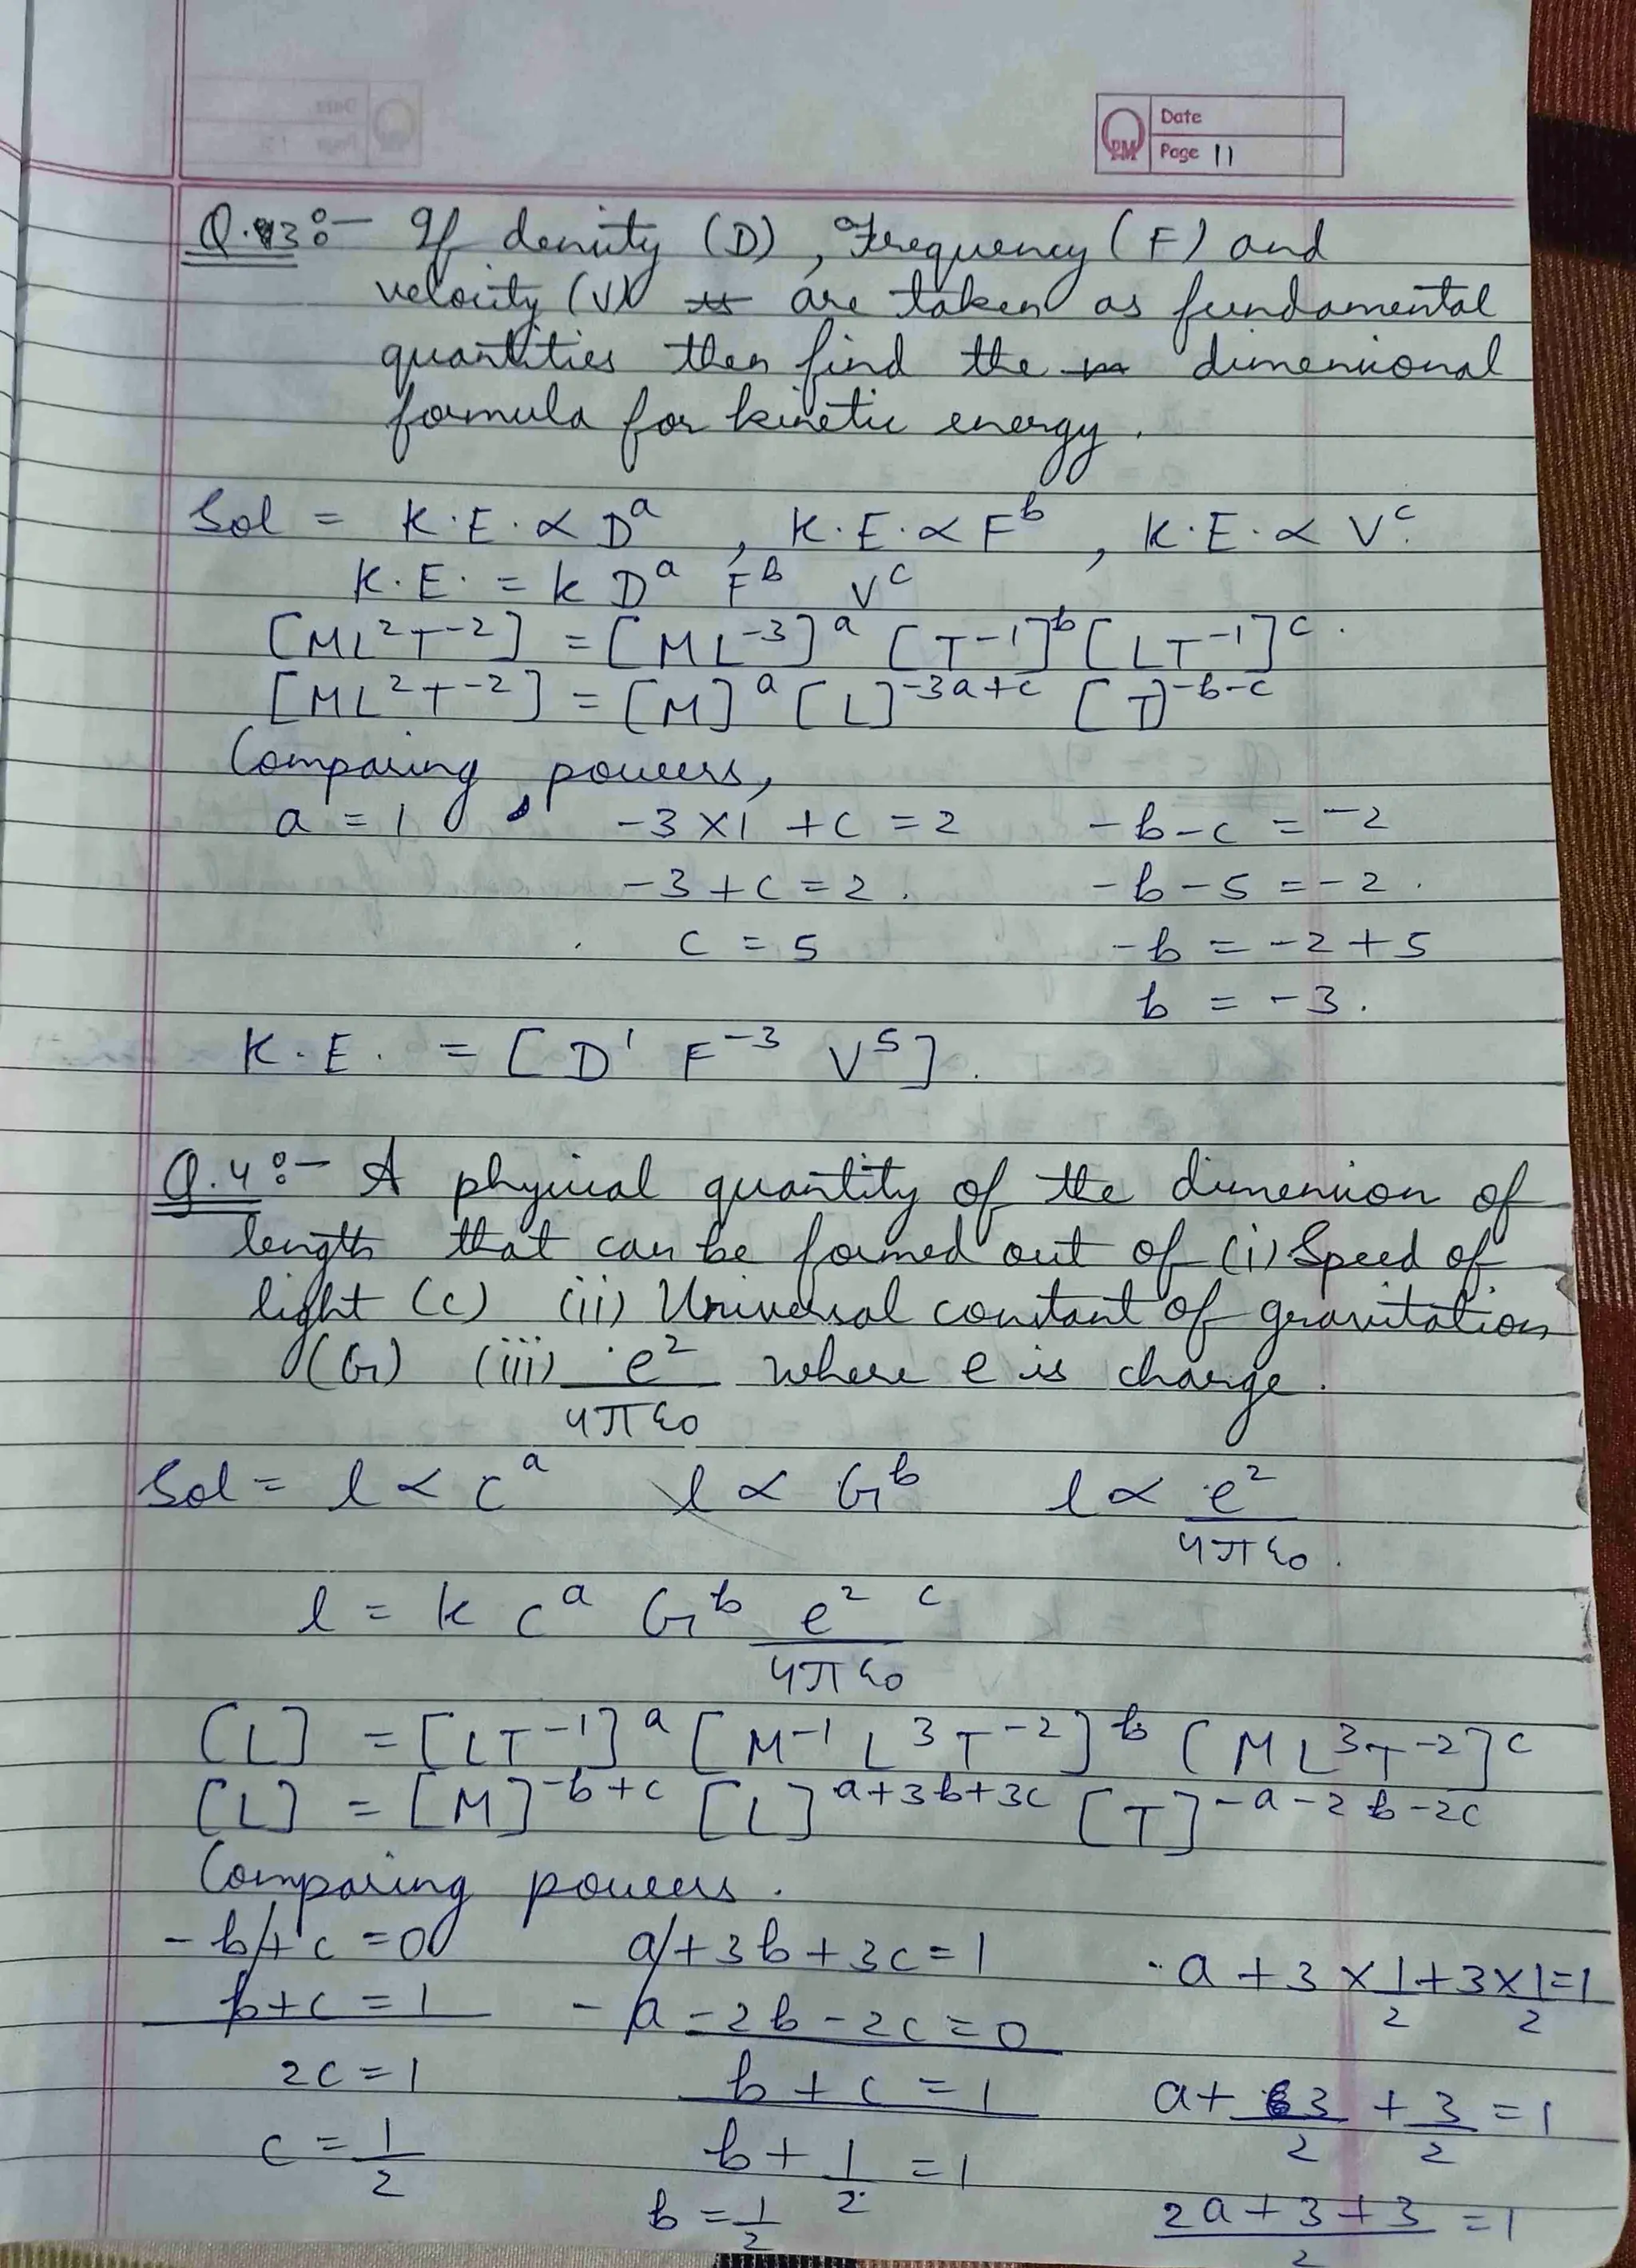 Date
Page 11
Q.3:- If density (D), Frequency (F) and
velocity (V) are taken as fundamental
quantities then find the dimensional
formula for kinetic energy.
Sol = K.E. ∝ D^a , K.E. ∝ F^b , K.E. ∝ V^c.
K.E. = k D^a F^b V^c
[ML^2T^-2] = [ML^-3]^a [T^-1]^b [LT^-1]^c.
[ML^2T^-2] = [M]^a [L]^-3a+c [T]^-b-c
Comparing powers,
a = 1 , -3×1 + c = 2 -b-c = -2
-3+c = 2. -b-5 = -2.
c = 5 -b = -2+5
b = -3.
K.E. = [D^1 F^-3 V^5].
Q.4:- A physical quantity of the dimension of
length that can be formed out of (i) Speed of
light (c) (ii) Universal constant of gravitation
(G) (iii) e^2/4πε0 where e is charge.
Sol = l ∝ c^a l ∝ G^b l ∝ e^2/4πε0.
l = k c^a G^b e^2/4πε0 ^c
[L] = [LT^-1]^a [M^-1 L^3 T^-2]^b [ML^3T^-2]^c
[L] = [M]^-b+c [L]^a+3b+3c [T]^-a-2b-2c
Comparing powers.
-b+c = 0 a+3b+3c = 1 a + 3×1/2 + 3×1/2 = 1
b+c = 1 -a-2b-2c = 0
2c = 1 b+c = 1 a + 3/2 + 3/2 = 1
c = 1/2 b + 1/2 = 1
b = 1/2 2a+3+3/2 = 1